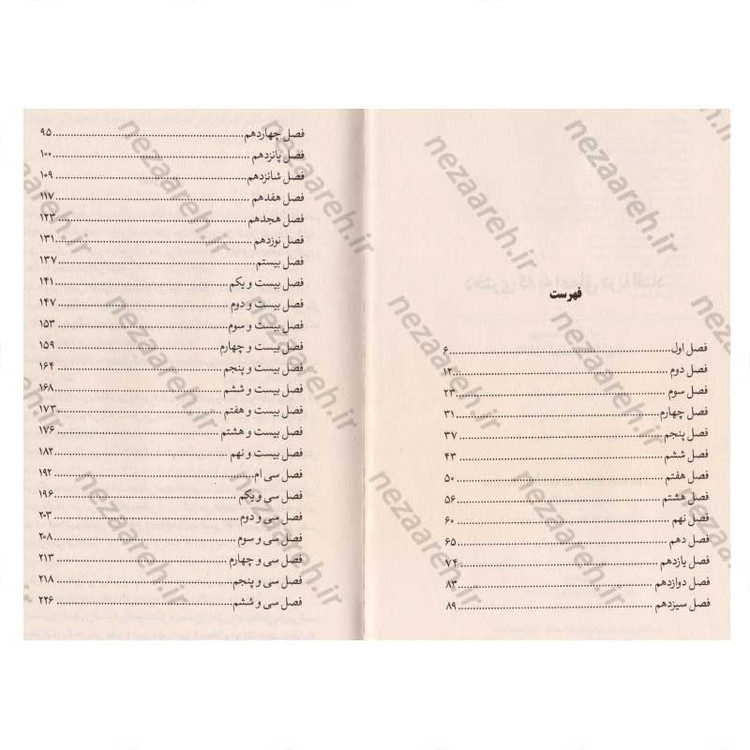 فهرست
فصل اول ........ ۶
فصل دوم ........ ۱۲
فصل سوم ........ ۲۳
فصل چهارم ........ ۳۱
فصل پنجم ........ ۳۷
فصل ششم ........ ۴۳
فصل هفتم ........ ۵۰
فصل هشتم ........ ۵۶
فصل نهم ........ ۶۰
فصل دهم ........ ۶۵
فصل یازدهم ........ ۷۴
فصل دوازدهم ........ ۸۳
فصل سیزدهم ........ ۸۹
فصل چهاردهم ........ ۹۵
فصل پانزدهم ........ ۱۰۰
فصل شانزدهم ........ ۱۰۹
فصل هفدهم ........ ۱۱۷
فصل هجدهم ........ ۱۲۳
فصل نوزدهم ........ ۱۳۱
فصل بیستم ........ ۱۳۷
فصل بیست و یکم ........ ۱۴۱
فصل بیست و دوم ........ ۱۴۷
فصل بیست و سوم ........ ۱۵۳
فصل بیست و چهارم ........ ۱۵۹
فصل بیست و پنجم ........ ۱۶۴
فصل بیست و ششم ........ ۱۶۸
فصل بیست و هفتم ........ ۱۷۳
فصل بیست و هشتم ........ ۱۷۶
فصل بیست و نهم ........ ۱۸۲
فصل سی ام ........ ۱۹۲
فصل سی و یکم ........ ۱۹۶
فصل سی و دوم ........ ۲۰۳
فصل سی و سوم ........ ۲۰۸
فصل سی و چهارم ........ ۲۱۳
فصل سی و پنجم ........ ۲۱۸
فصل سی و ششم ........ ۲۲۶
nezaareh.ir